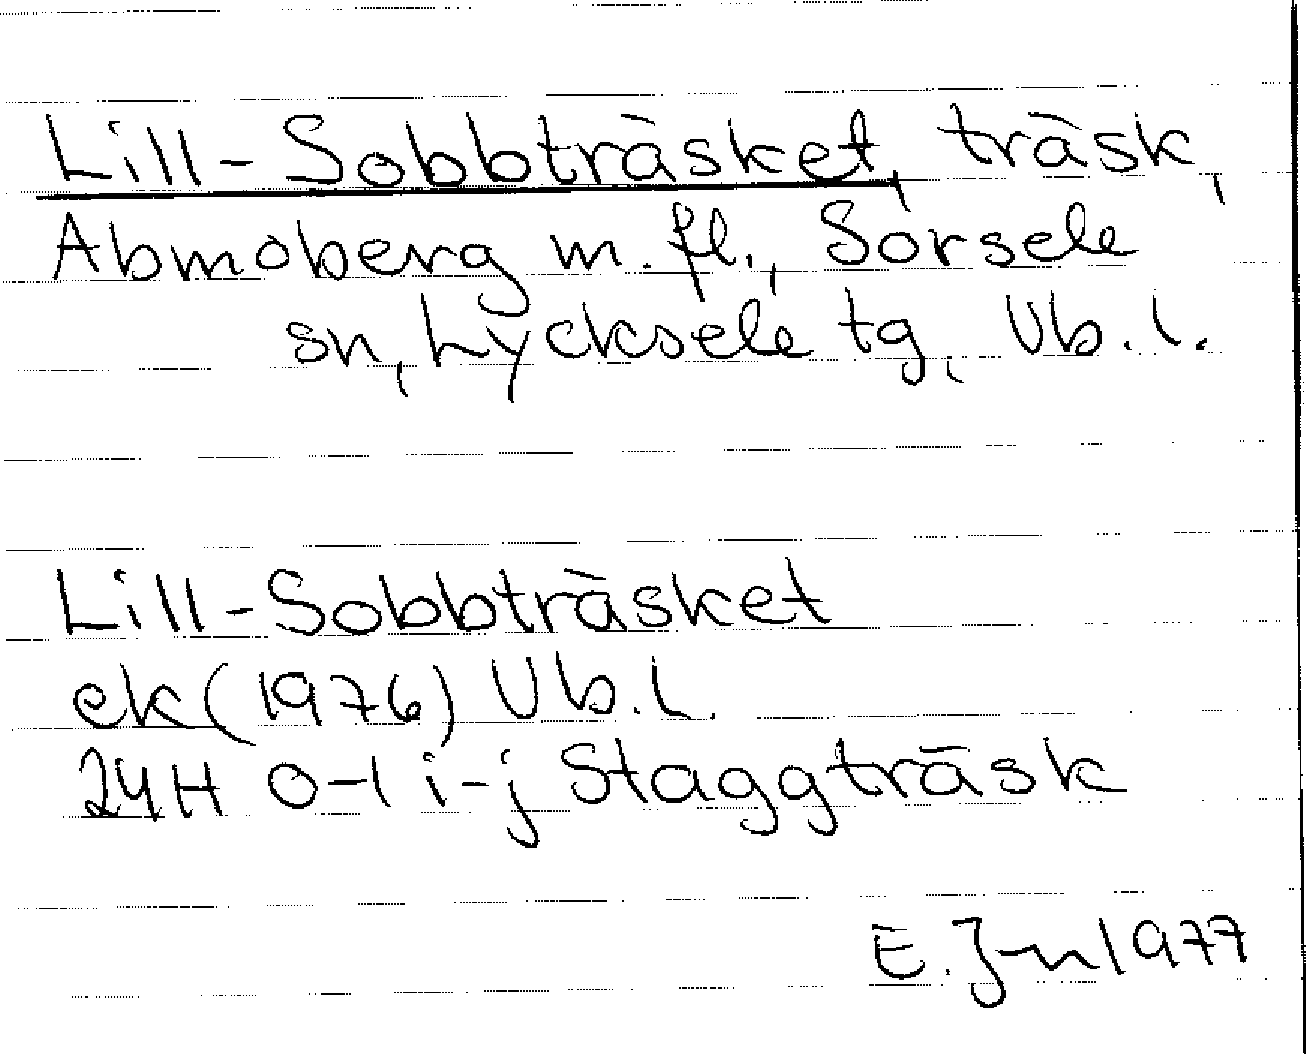 Lill-Sobbträsket, träsk,
Abmoberg m. fl., Sorsele
sn, Lycksele tg, Vb. l.
Lill-Sobbträsket
ek (1976) Vb. l.
24H 0-1 i-j Staggträsk
E. Jn 1977